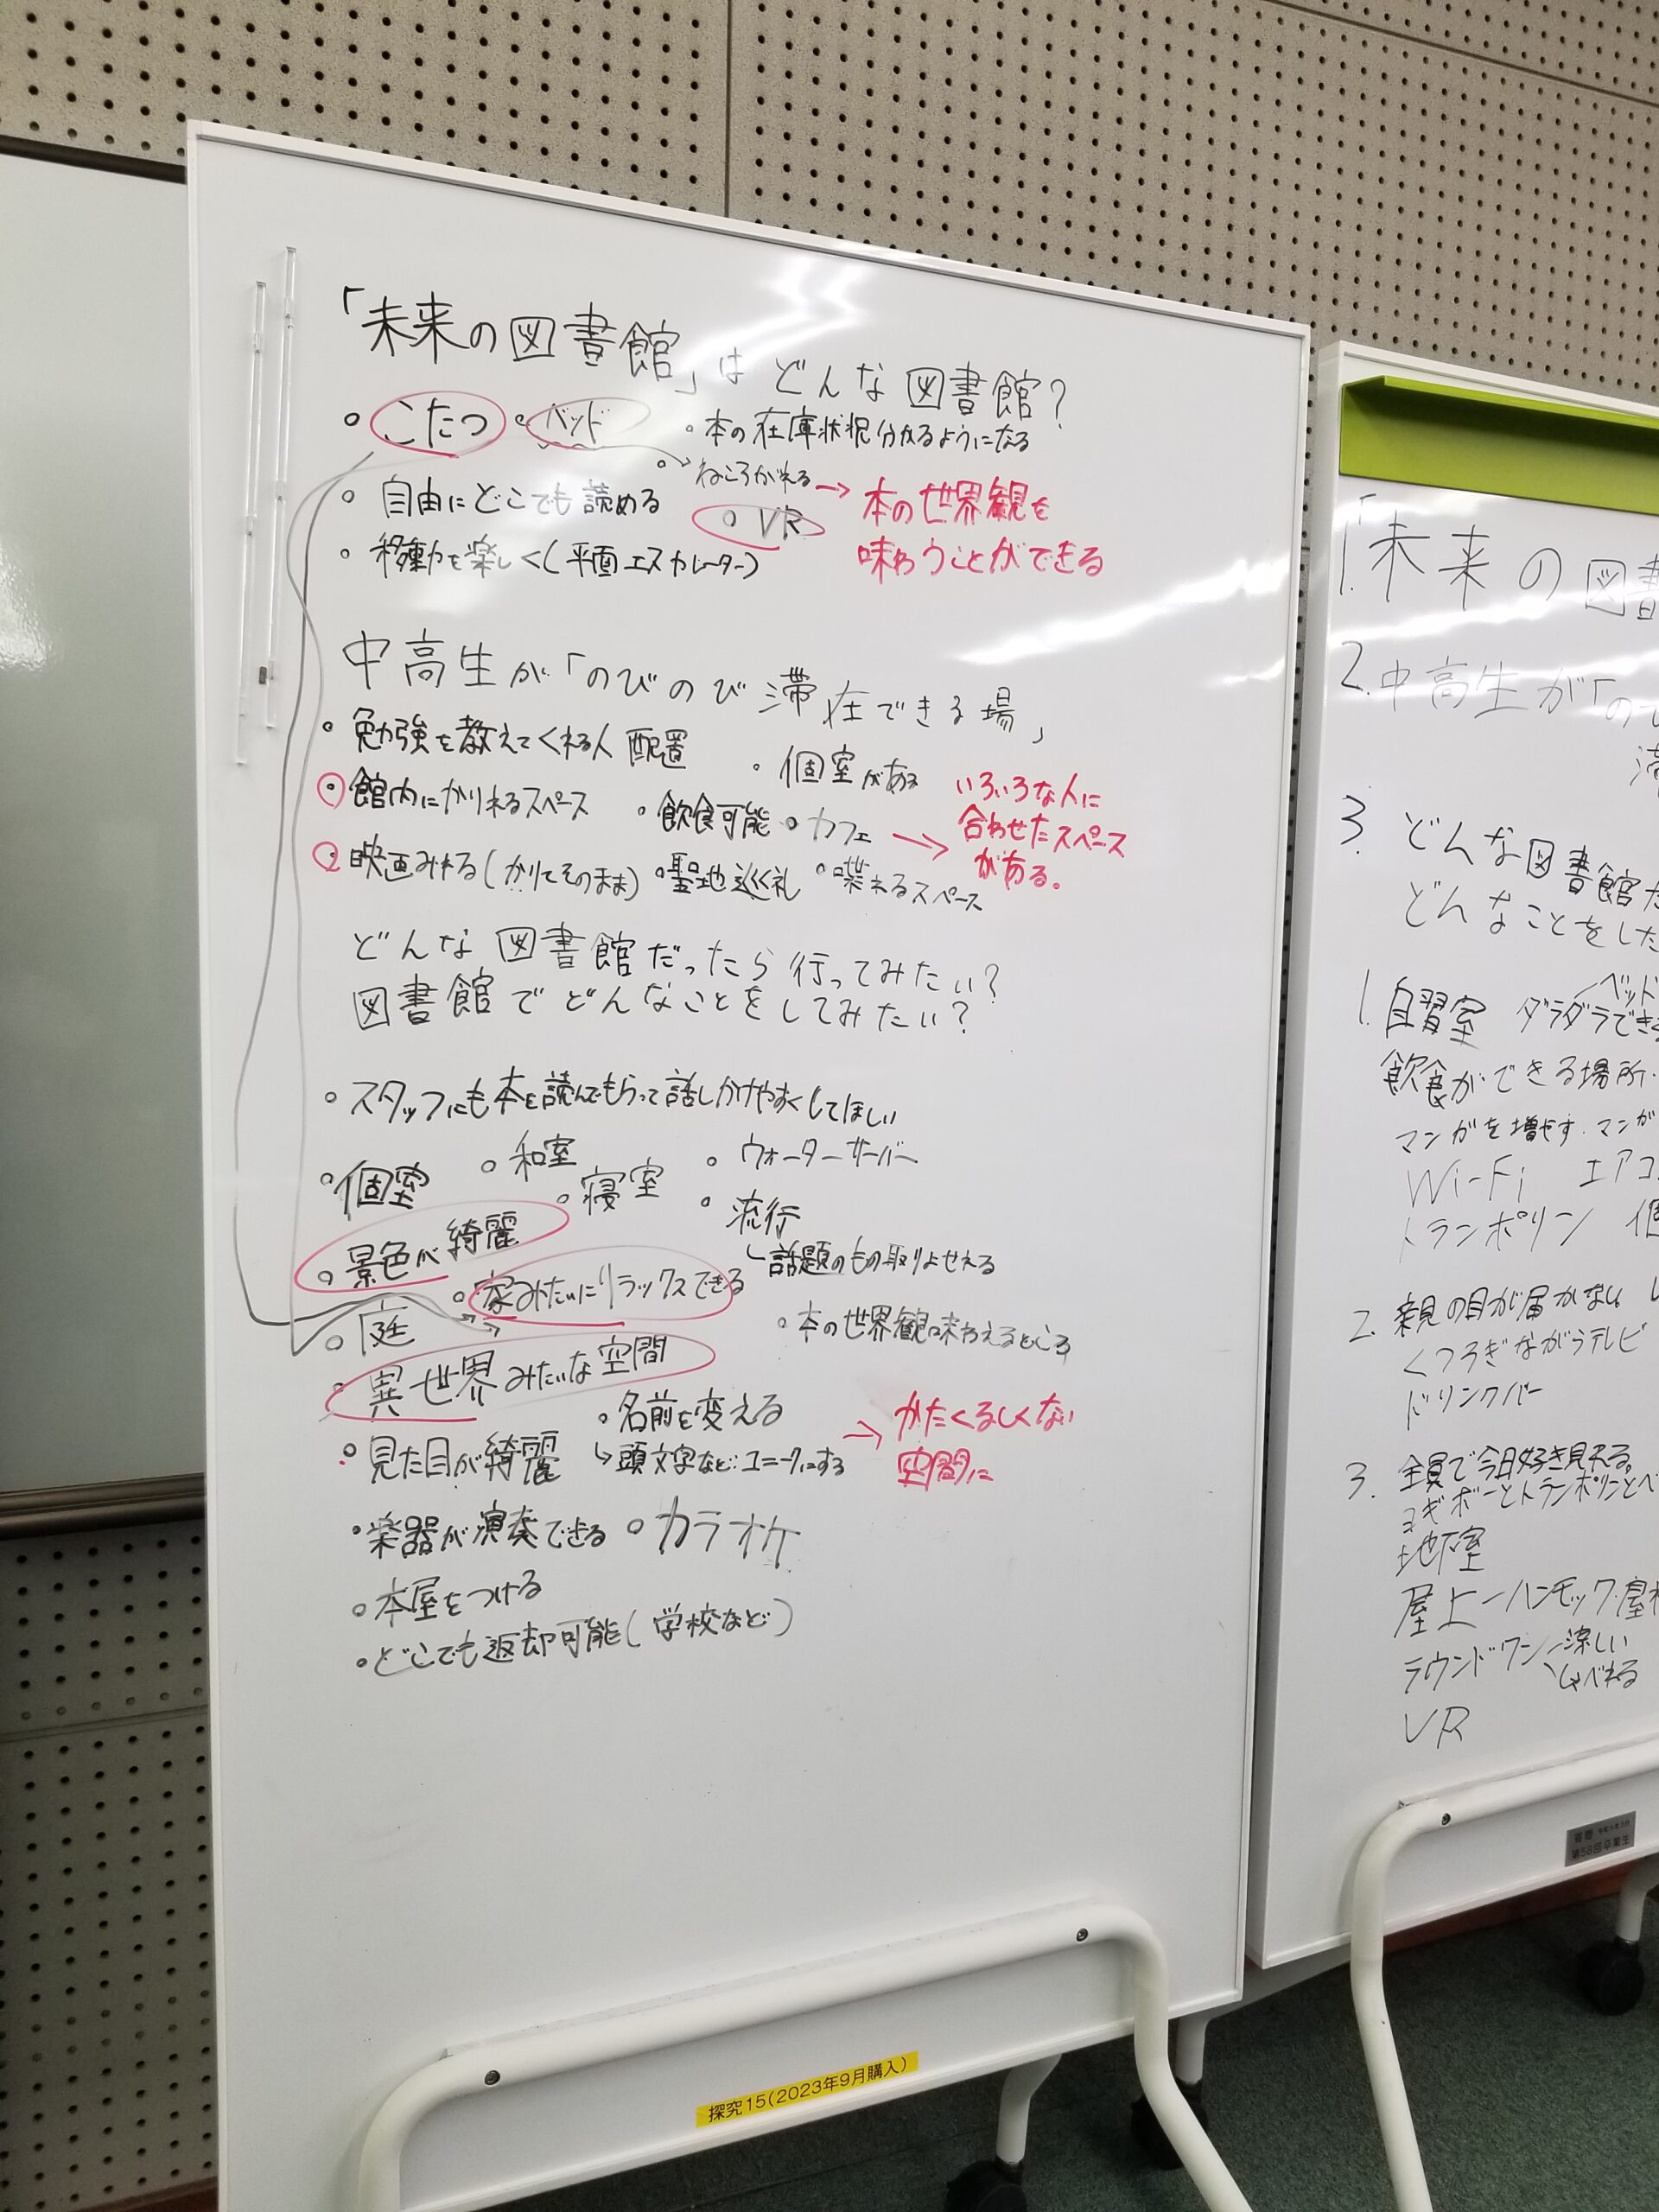 「未来の図書館」は どんな図書館?
。こたつ 。ベッド 。本の在庫状況分かるようになる
。ねころがれる
。自由にどこでも読める 。VR → 本の世界観を
味わうことができる
。移動を楽しく(平面エスカレーター)
中高生が「のびのび滞在できる場」
。勉強を教えてくれる人 配置 ・個室がある
・館内にかりれるスペース ・飲食可能 。カフェ → いろいろな人に
合わせたスペース
がある。
・映画みれる(かりてそのまま) 。聖地巡礼 。喋れるスペース
どんな図書館だったら行ってみたい?
図書館でどんなことをしてみたい?
。スタッフにも本を読んでもらって話しかけやすくしてほしい
。個室 。和室 。ウォーターサーバー
。寝室 。流行
↳話題のもの取りよせれる
。景色が綺麗
。家みたいにリラックスできる
。庭 。本の世界観味わえるところ
。異世界みたいな空間
。名前を変える
↳頭文字など:ユニークにする → かたくるしくない
空間に
。見た目が綺麗
・楽器が演奏できる 。カラオケ
。本屋をつける
。どこでも返却可能(学校など)
探究15(2023年9月購入)
1.「未来の図書
2.中高生が「のび
滞
3. どんな図書館だ
どんなことをした
1. 自習室 ダラダラできる
ベッド
飲食ができる場所.
マンガを増やす.マンガ
Wi-Fi エアコ
トランポリン 個
2. 親の目が届かない
くつろぎながらテレビ
ドリンクバー
3. 全員で今日好き見れる。
ヨギボーとトランポリンとベ
地下室
屋上ーハンモック・屋
ラウンドワン 涼しい
しゃべれる
VR
第58回卒業生